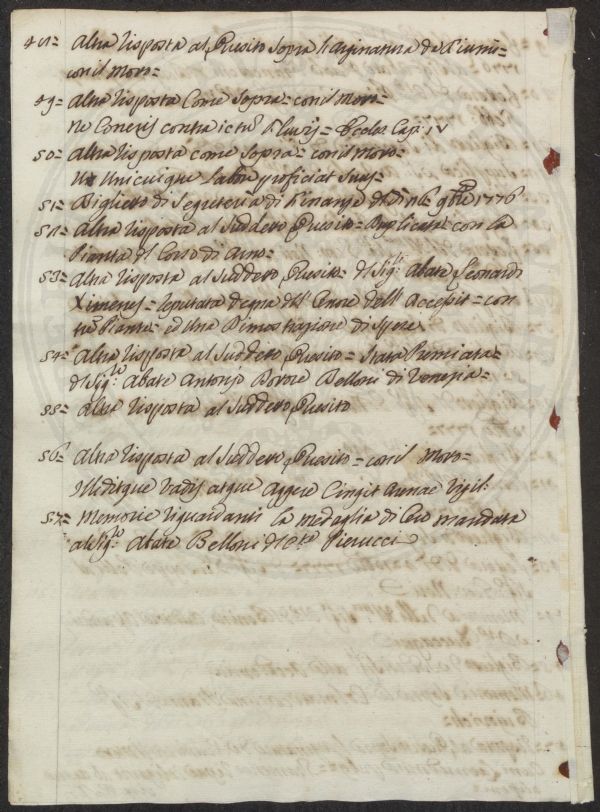 48= Altra Risposta al Quesito Sopra l'arginatura de Fiumi=
con il Moto=
49= Altra risposta Come Sopra= con il Moto=
Ne Coneris contra ictu Fluvij= Eccles: Cap: IV
50= Altra risposta come Sopra= con il Moto=
Ut Unicuique Labor proficiat Suus=
51= Biglietto di Segreteria di Finanze de' di n 6 9bre 1776
52= Altra risposta al Suddetto Quesito= duplicata con la
Pianta del Corso di Arno=
53= Altra risposta al Suddetto Quesito= del Sig:r Abate Leonardo
Ximenes= reputata degna dell' Onore dell' Accessit= con
tre Piante= ed una Dimostrazione di Spese
54= Altra risposta al Suddetto Quesito= Stata Premiata=
del Sig:re Abate Antonio Bortolo Belloni di Venezia=
55= Altra risposta al Suddetto Quesito
56= Altra risposta al Suddetto Quesito= con il Moto=
Viditque Vadis atque Aggere Cingit Arenae Virgil:
57= Memorie riguardanti la medaglia di Oro mandata
al Sig:re Abate Belloni del Cte Pierucci